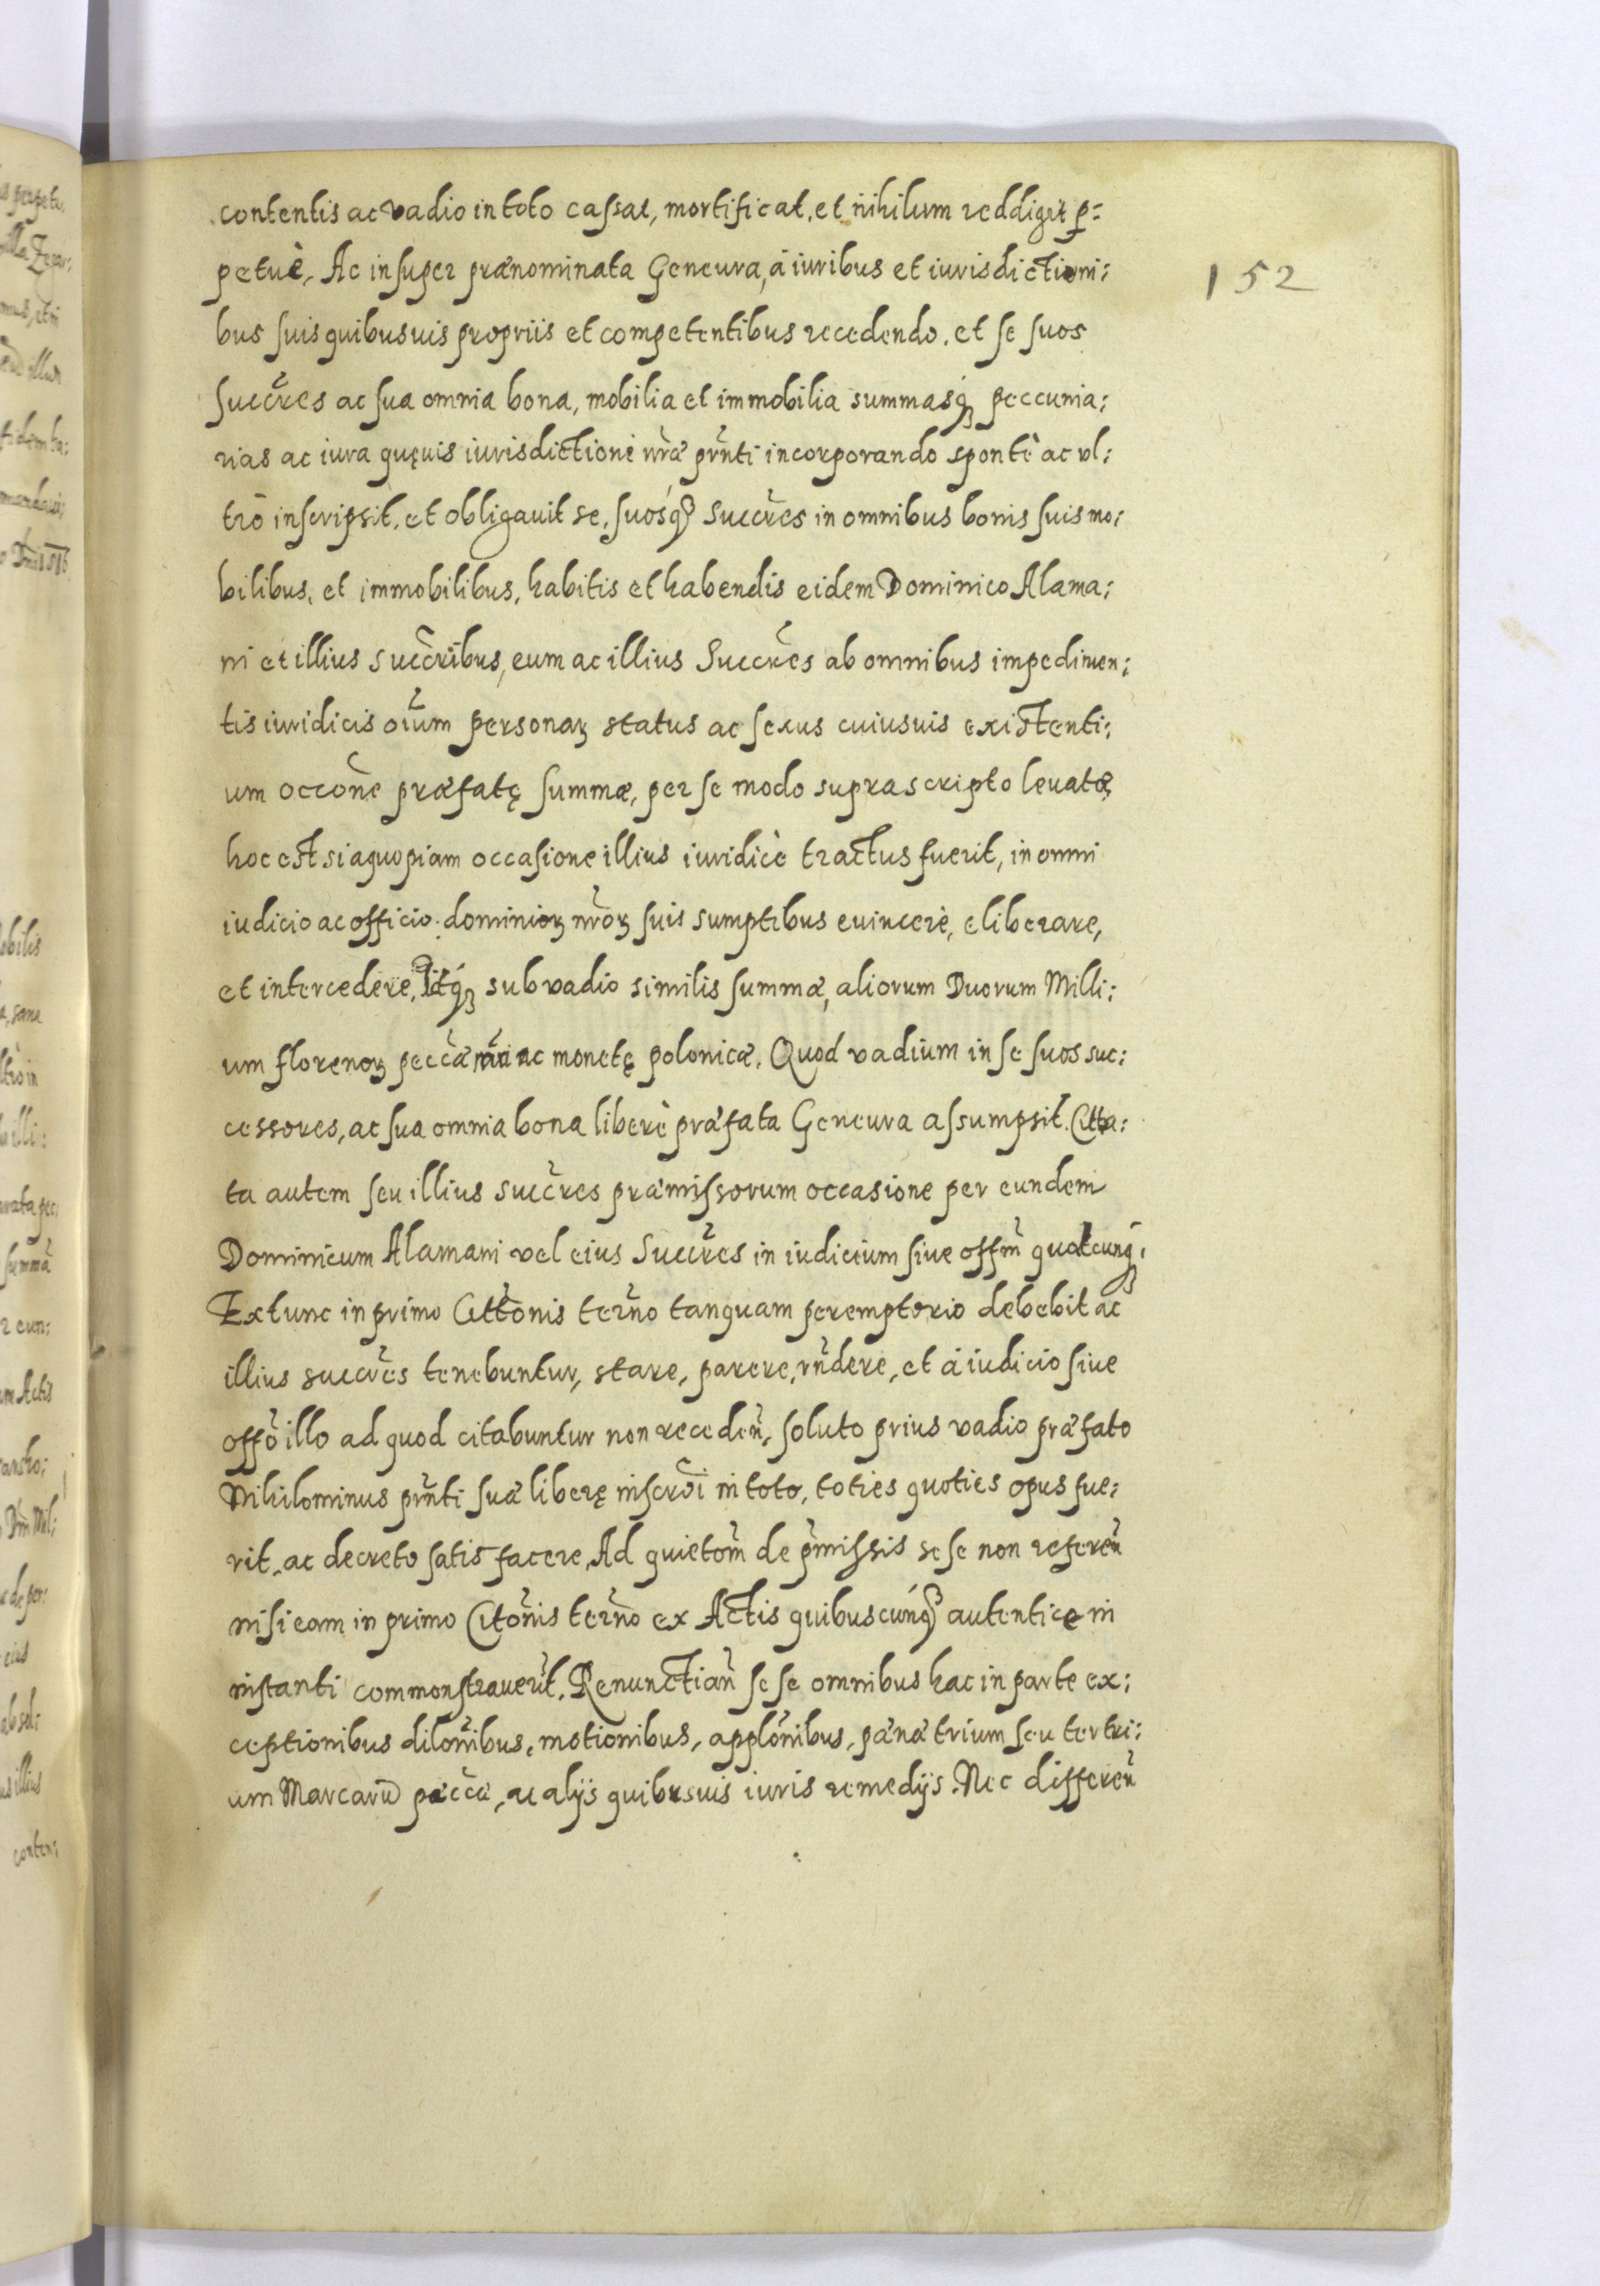 contentis ac vadio in toto cassat, mortificat, et nihilum reddigit p̱=
petuè, Ac insuper prænominata Geneura, à iuribus et iurisdictioni:
152
bus suis quibusuis propriis et competentibus recedendo. et se suos
succr̃es ac sua omnia bona, mobilia et immobilia summasq́ꝫ peccunia:
rias ac iura quęuis iurisdictioni nr̃æ pñti incorporando spontè ac vl:
trò inscripsit, et obligauit se, suosq́ꝫ Succr̃es in omnibus bonis suis mo:
bilibus, et immobilibus, habitis et habendis eidem Dominico Alama:
ni et illius succr̃ibus, eum ac illius Succr̃es ab omnibus impedimen:
tis iuridicis oĩum personaꝝ status ac sexus cuiusuis existenti:
um occõne præfatę summæ, per se modo suprascripto leuatæ,
hoc est si a quopiam occasione illius iuridicè tractus fuerit, in omni
iudicio ac officio dominioꝝ nr̃oꝝ suis sumptibus euincere, eliberare,
et intercedere, Idq́ꝫ sub vadio similis summæ, aliorum Duorum Milli:
um florenoꝝ pecc̃æ ac monetę polonicæ. Quod vadium in se suos suc:
cessores, ac sua omnia bona liberè præfata Geneura assumpsit. Citta:
ta autem seu illius succr̃es præmissorum occasione per eundem
Dominicum Alamani vel eius Succr̃es in iudicium siue offm̃ qualcunq́ꝫ
Extunc in primo Cittõnis terño tanquam peremptorio debebit ac
illius succr̃es tenebuntur, stare, parere, rñdere, et à iudicio siue
offõ illo ad quod citabuntur non receden̄, soluto prius vadio præfato
Nihilominus pñti suæ liberę inscrõi in toto, toties quoties opus fue:
rit, ac decreto satisfacere, Ad quietom̃ de p̃missis sese non referen̄
nisi eam in primo Citõnis terño ex Actis quibuscunq́ꝫ autentice in
instanti commonstrauerit. Renunctian̄ sese omnibus hac in parte ex:
ceptionibus dilõnibus, motionibus, applõnibus, pænæ trium seu tertri:
um Marcarū pæccæ, ac alijs quibusuis iuris remedijs. Nec differen̄